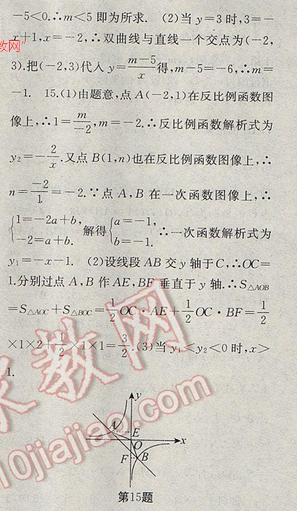 -5<0.∴m<5即为所求. (2)当y=3时,3=-
x+1,x=-2,∴双曲线与直线一个交点为(-2,
3).把(-2,3)代入y=\frac{m-5}{x}得,m-5=-6,∴m=
-1. 15.(1)由题意,点A(-2,1)在反比例函数图
像上,∴1=\frac{m}{-2},m=-2.∴反比例函数解析式为
y₂=-\frac{2}{x}.又点B(1,n)也在反比例函数图像上,∴
n=\frac{-2}{1}=-2.∵点A,B在一次函数图像上,∴
{1=-2a+b, -2=a+b. 解得{a=-1, b=-1. ∴一次函数解析式为
y₁=-x-1. (2)设线段AB交y轴于C,∴OC=
1.分别过点A,B作AE,BF垂直于y轴.∴S△AOB
=S△AOC+S△BOC=\frac{1}{2}OC·AE+\frac{1}{2}OC·BF=\frac{1}{2}
×1×2+\frac{1}{2}×1×1=\frac{3}{2}.(3)当y₁<y₂<0时,x>
1.
y
A
E
O
x
F
B
第15题